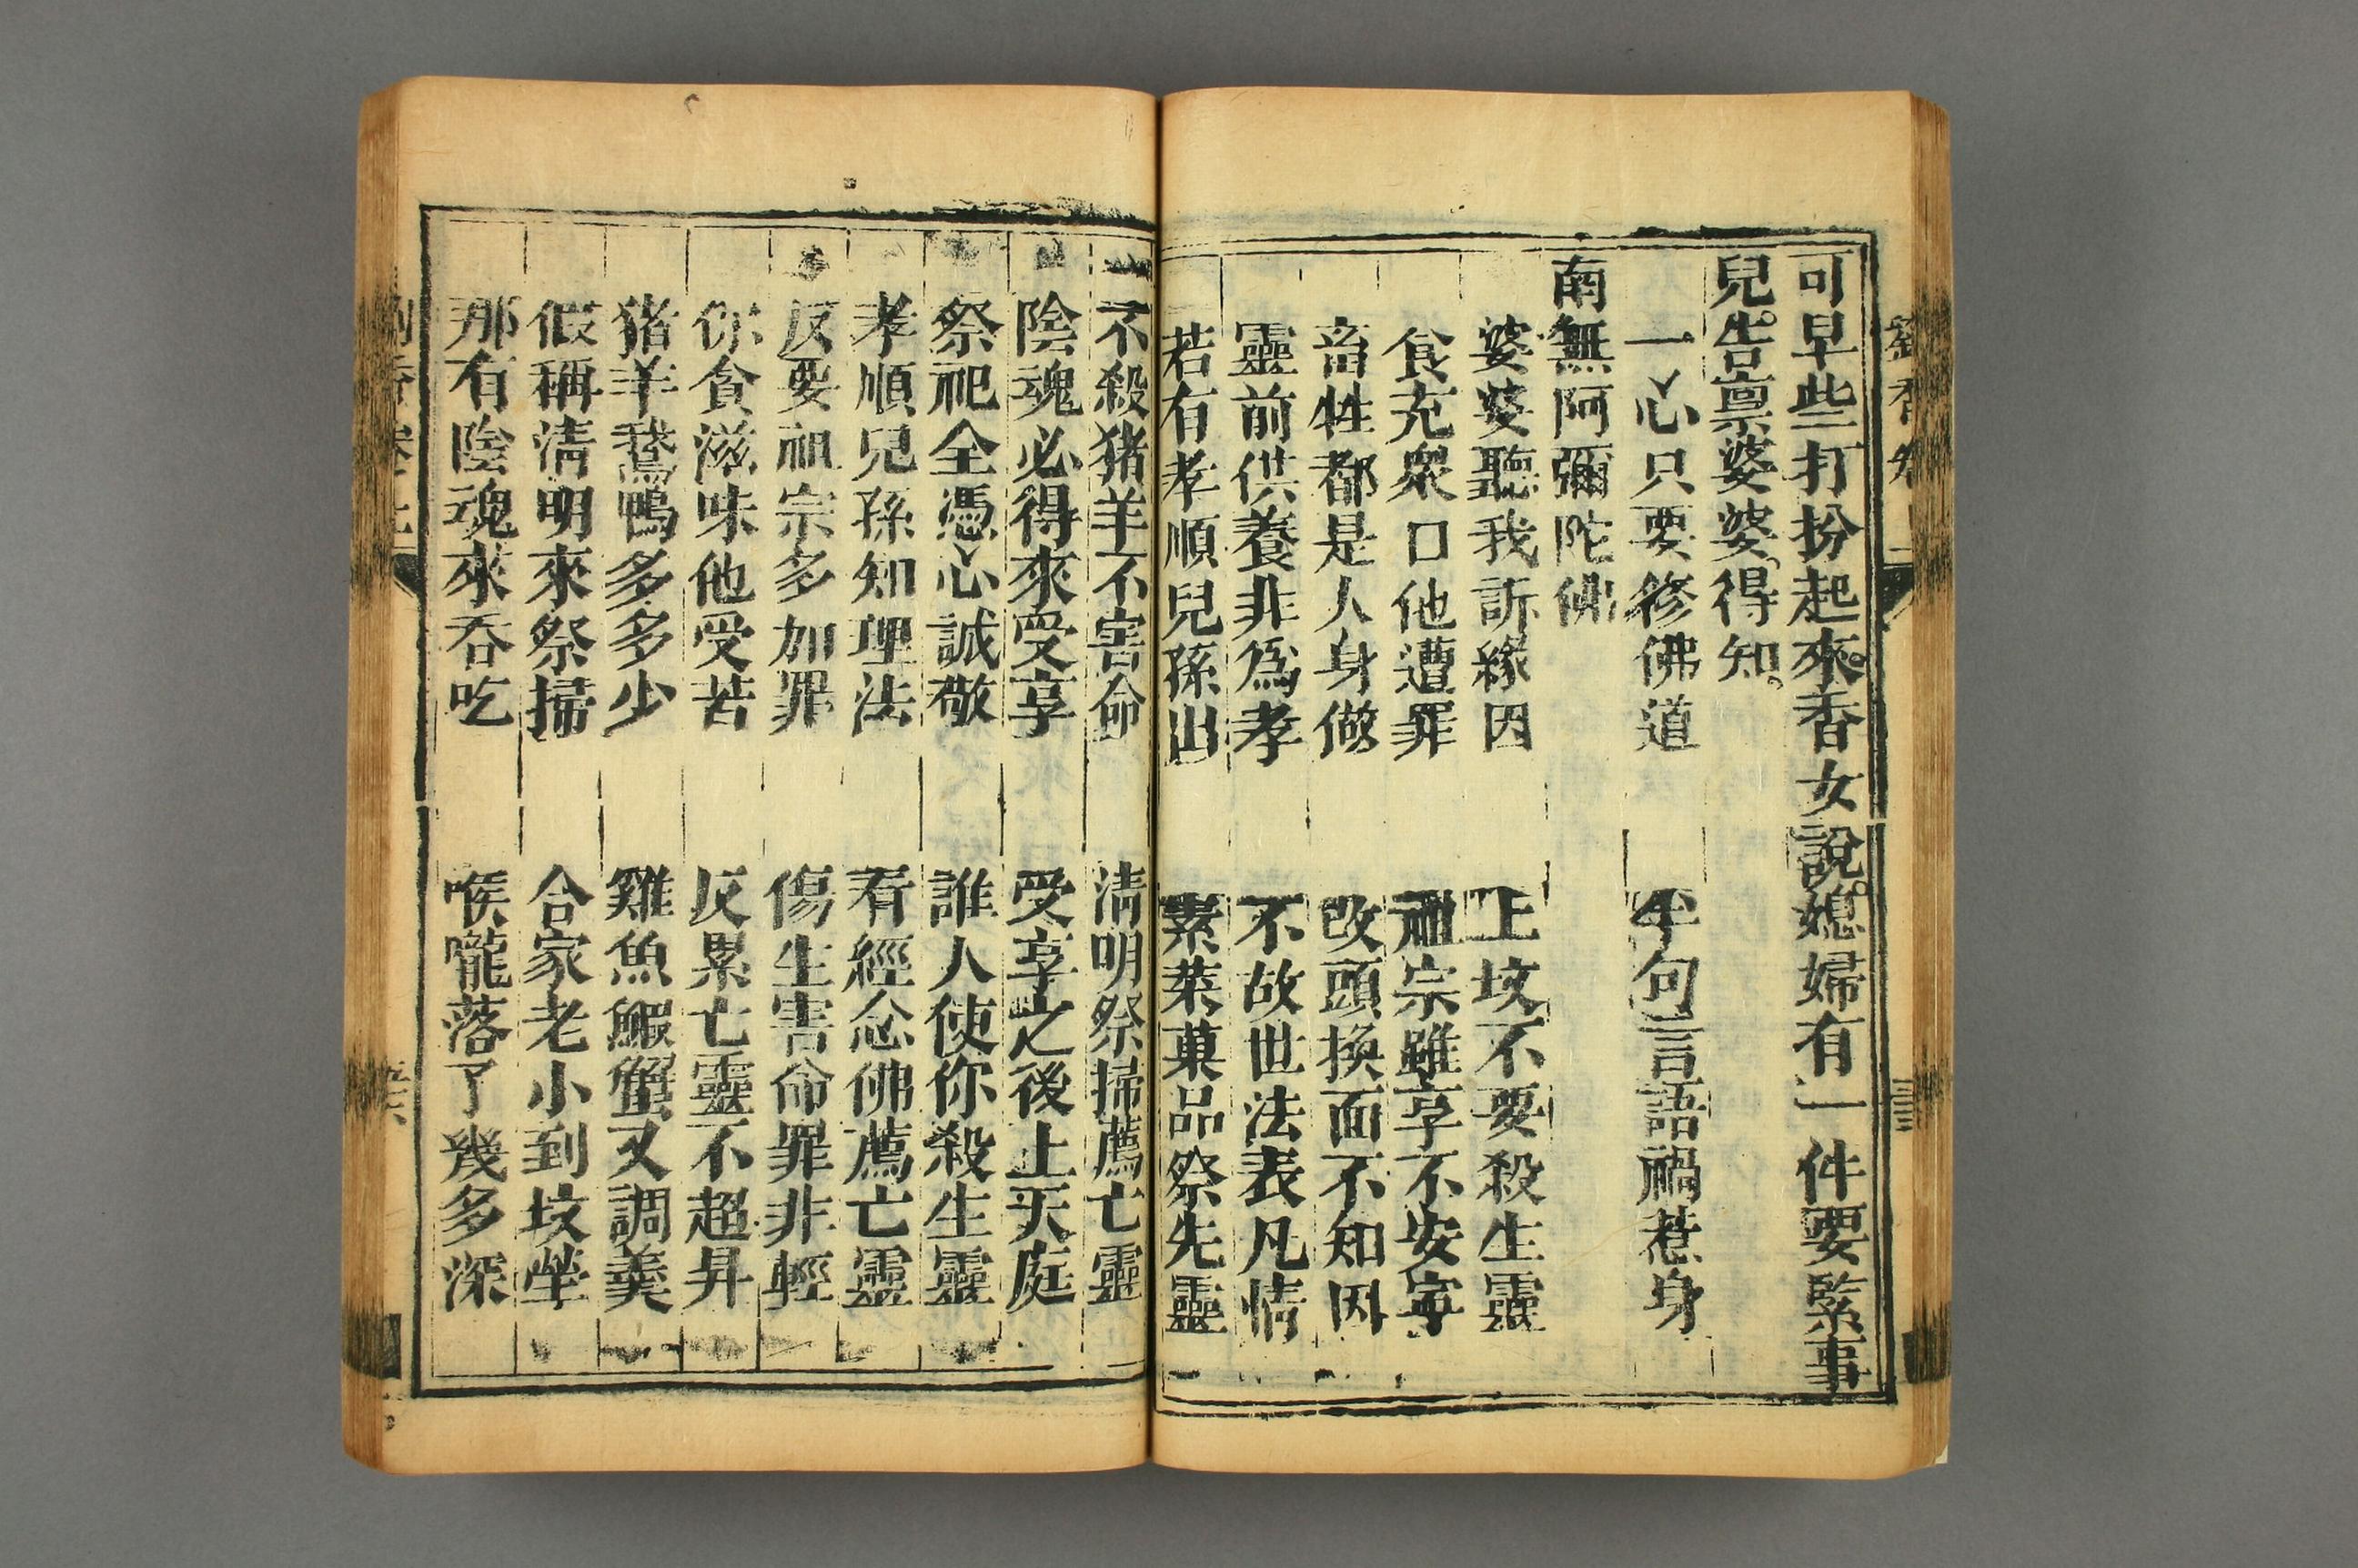 可早些打扮起來。香女說。媳婦有一件要緊事
兒。告禀婆婆。得知。
一心只要修佛道 半句言語禍惹身
南無阿彌陀佛
婆婆聽我訴緣因 上坟不要殺生靈
食充衆口他遭罪 祖宗雖享不安寧
畜牲都是人身做 改頭換面不知因
靈前供養非爲孝 不故世法表凡情
若有孝順兒孫出 素菜菓品祭先靈
不殺猪羊不害命 淸明祭掃薦亡靈
陰魂必得來受享 受享之後上天庭
祭祀全憑心誠敬 誰人使你殺生靈
孝順兒孫知理法 看經念佛薦亡靈
反要祖宗多加罪 傷生害命罪非輕
你貪滋味他受苦 反累亡靈不超昇
猪羊鵞鴨多多少 雞魚鰕蟹又調羹
假稱淸明來祭掃 合家老小到坟塋
那有陰魂來吞吃 喉嚨落了幾多深